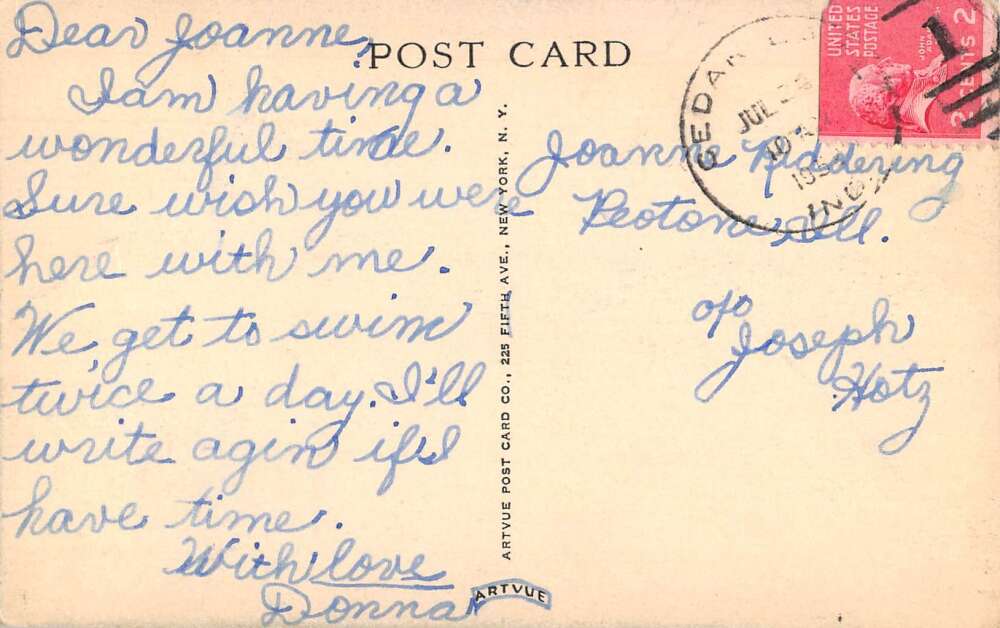 POST CARD
Dear Joanne,
I am having a
wonderful time.
Sure wish you were
here with me.
We get to swim
twice a day. I'll
write agin if I
have time.
With love
Donna
ARTVUE POST CARD CO., 225 FIFTH AVE., NEW YORK, N. Y.
ARTVUE
CEDAR
JUL
IND.
UNITED
STATES
POSTAGE
JOHN
2 CENTS 2
1
Joanne Riddering
Peotone, Ill.
c/o
Joseph
Hotz